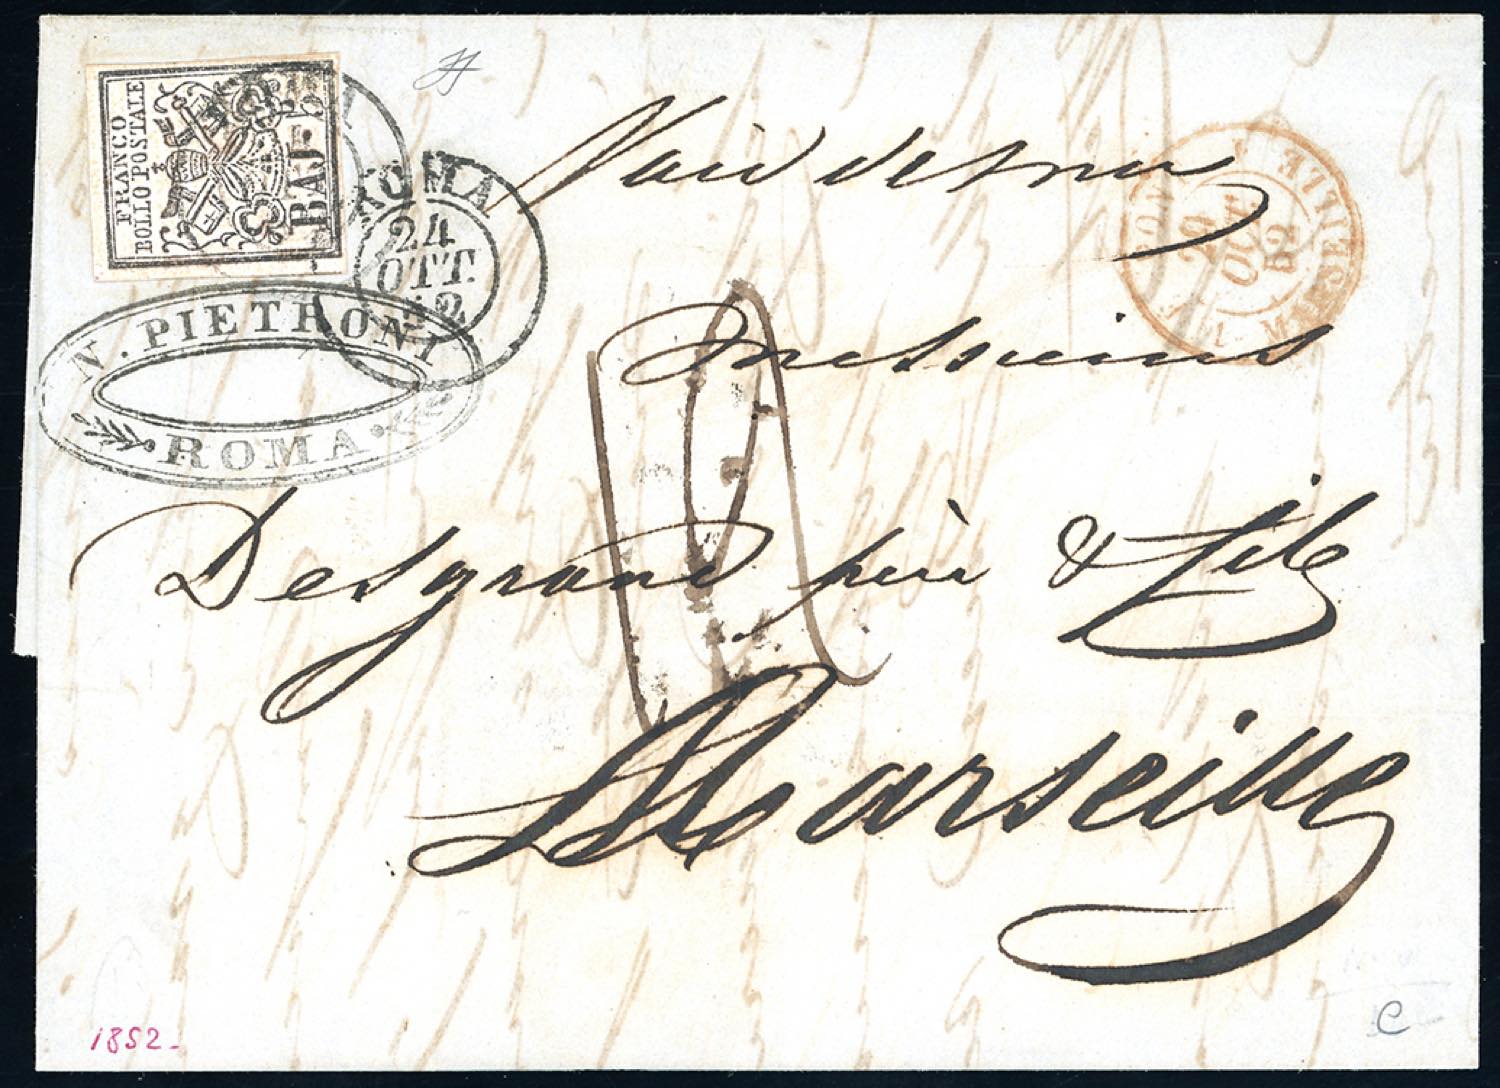 FRANCO
BOLLO POSTALE
BAJ.
ROMA
24
OTT.
52
N. PIETRONI
ROMA
Voie de mer
Messieurs
Desgrand père & Fils
Marseille
OCT.
52
1852
C